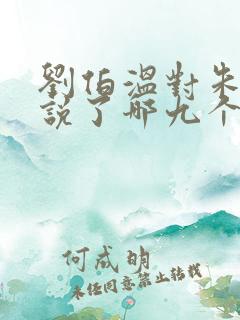 劉伯溫對朱
說了哪九个
何成明
未经同意禁止转载